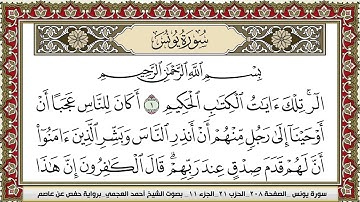 سُورَةُ يُونُسَ
بِسْمِ ٱللَّهِ ٱلرَّحْمَٰنِ ٱلرَّحِيمِ
الٓر ۚ تِلْكَ ءَايَٰتُ ٱلْكِتَٰبِ ٱلْحَكِيمِ ١ أَكَانَ لِلنَّاسِ عَجَبًا أَنْ
أَوْحَيْنَآ إِلَىٰ رَجُلٍ مِّنْهُمْ أَنْ أَنذِرِ ٱلنَّاسَ وَبَشِّرِ ٱلَّذِينَ ءَامَنُوٓا۟
أَنَّ لَهُمْ قَدَمَ صِدْقٍ عِندَ رَبِّهِمْ ۗ قَالَ ٱلْكَٰفِرُونَ إِنَّ هَٰذَا
سورة يونس _ الصفحة ٢٠٨ _ الحزب ٢١ _ الجزء ١١ _ بصوت الشيخ أحمد العجمي _ برواية حفص عن عاصم